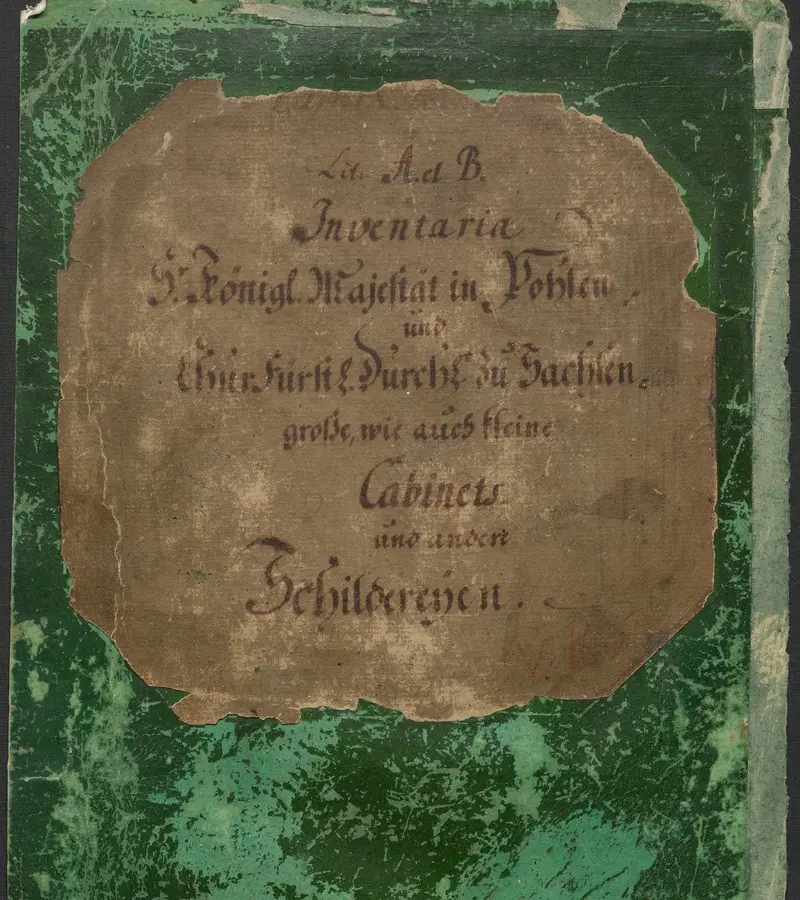 Lit. A. et B.
Inventaria
Sr. Königl. Majestät in Pohlen,
und
Chur Fürstl. Durchl. zu Sachsen.
große, wie auch kleine
Cabinets
und andere
Schildereÿen.